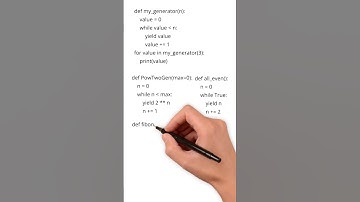 def my_generator(n):
value = 0
while value < n:
yield value
value += 1
for value in my_generator(3):
print(value)
def PowTwoGen(max=0):
n = 0
while n < max:
yield 2 ** n
n += 1
def all_even():
n = 0
while True:
yield n
n += 2
def fibon